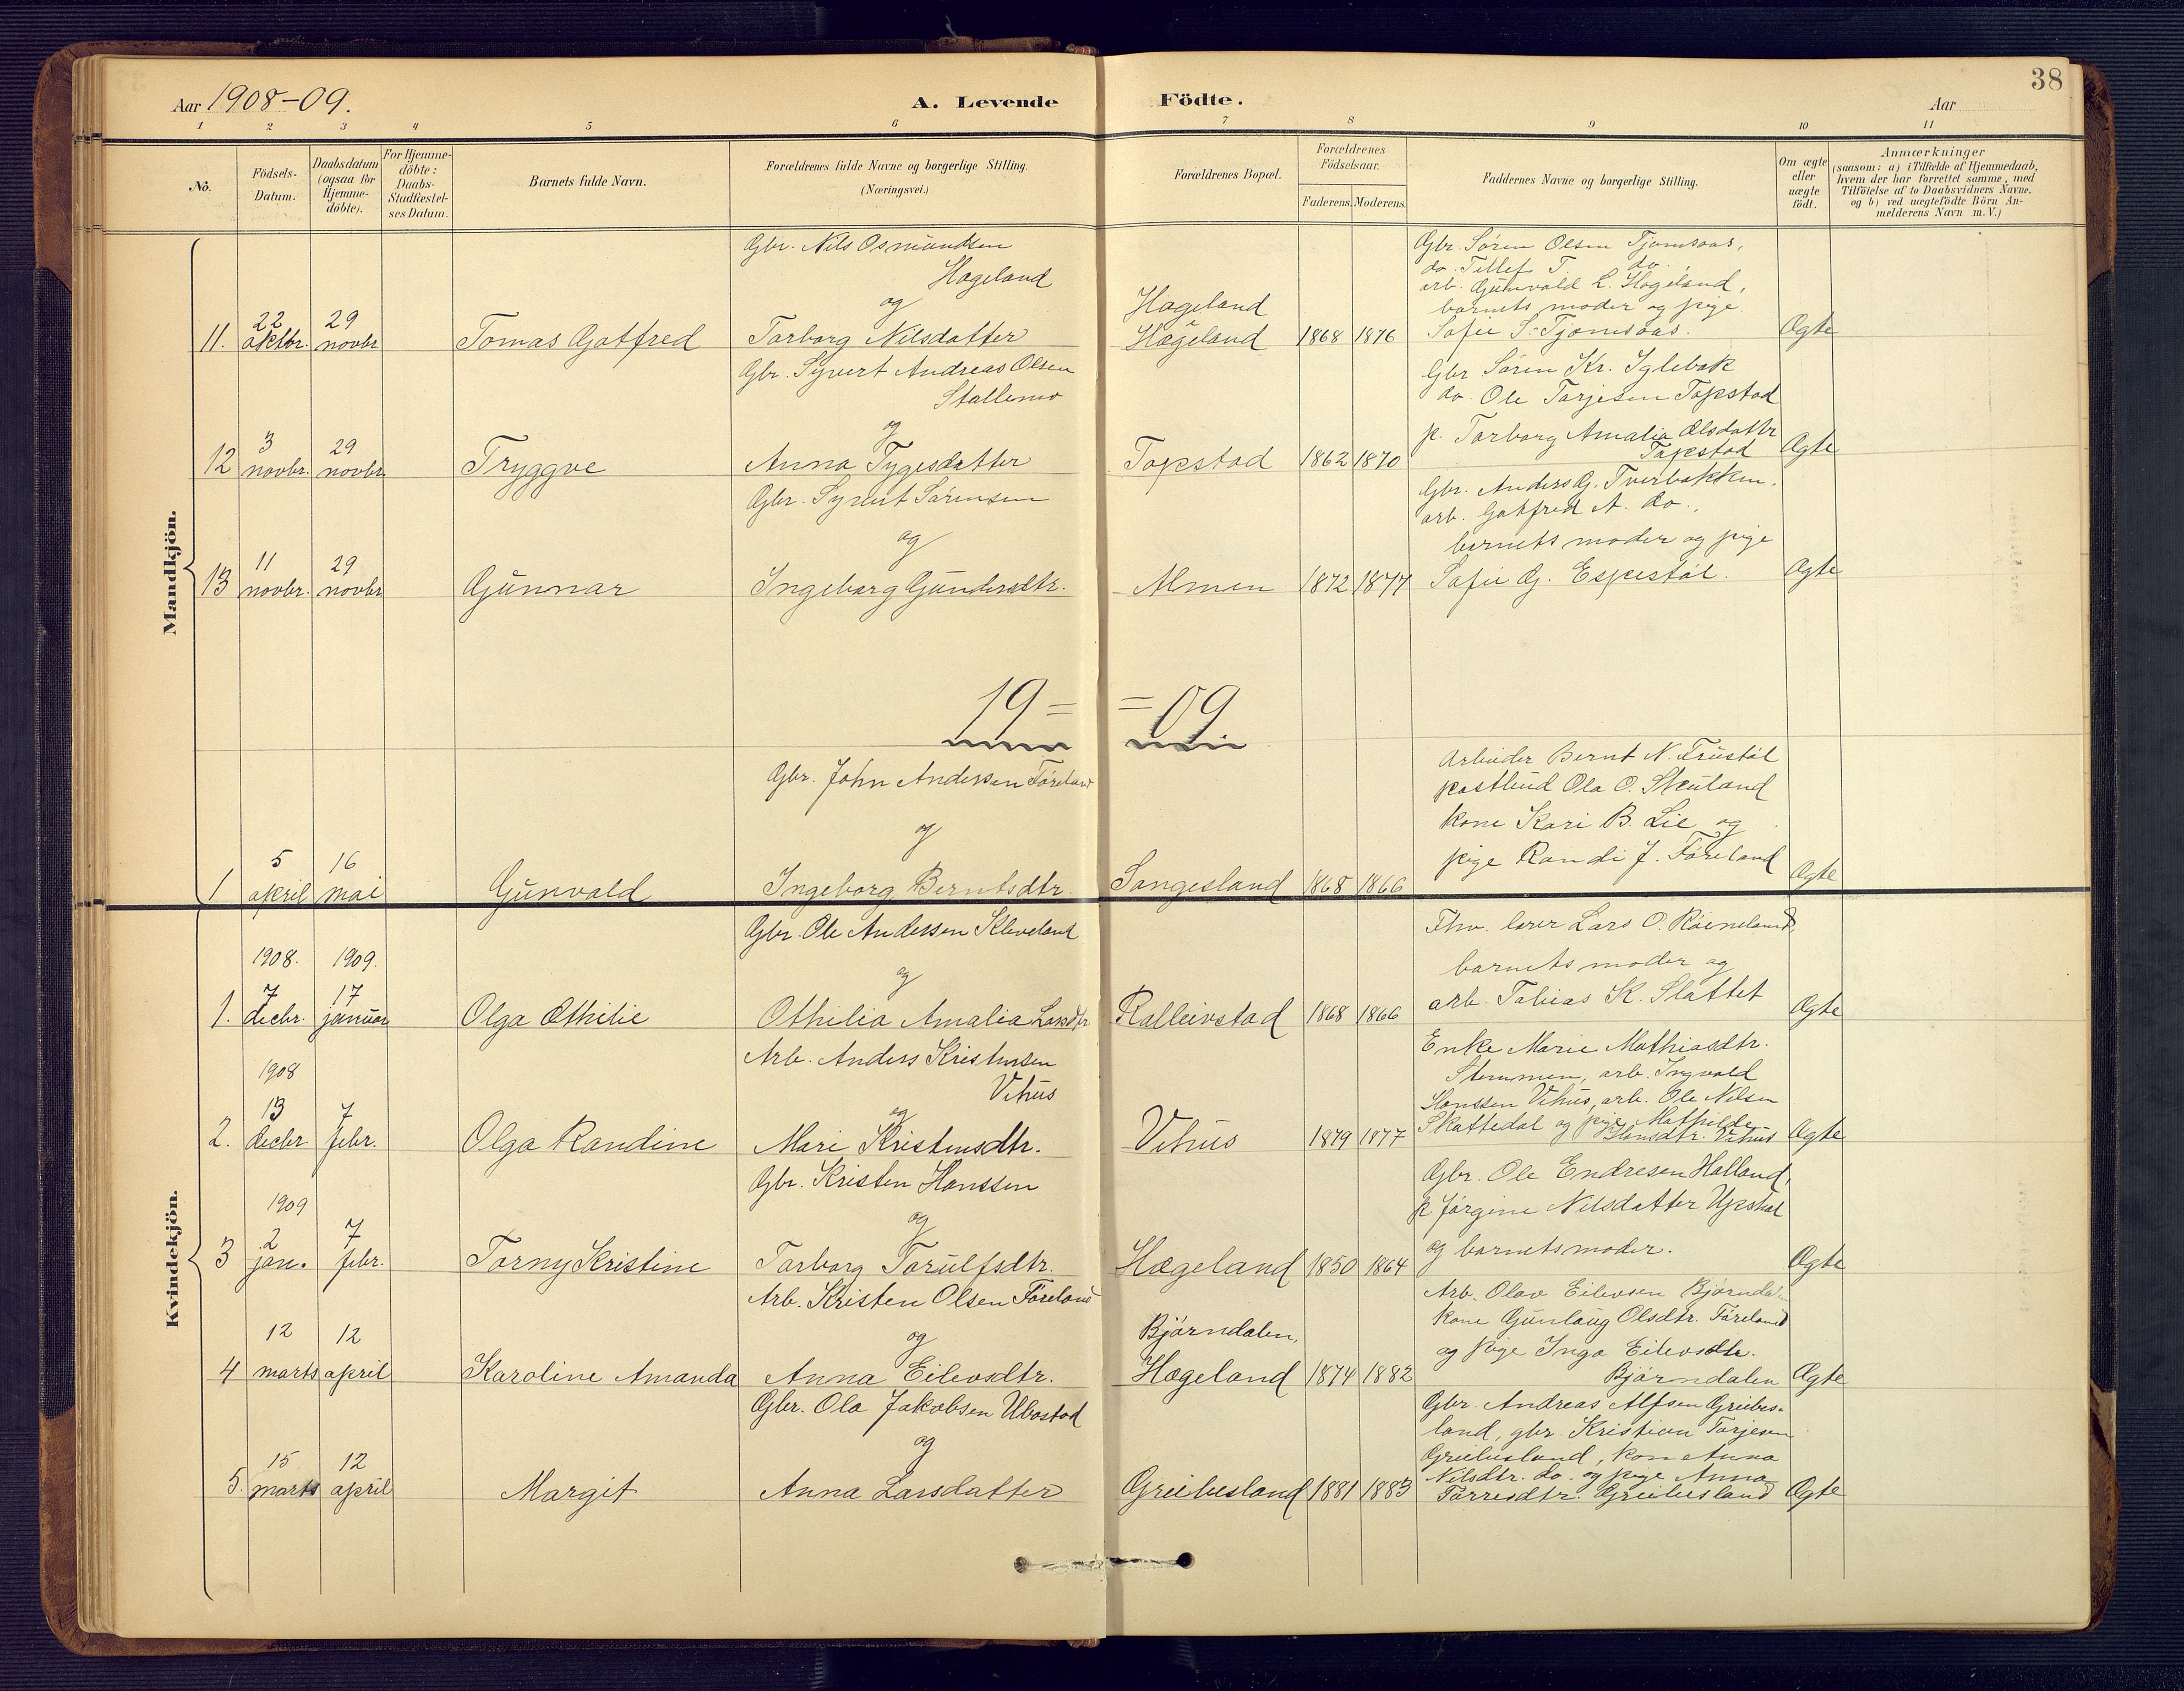 38
Aar 1908-09.
A. Levende Födte.
Aar
1 2 3 4 5 6 7 8 9 10 11
Nô.
Födsels-Datum.
Daabsdatum (ogsaa for Hjemme-döbte).
For Hjemme-döbte: Daabs-Stadfæstel-ses Datum.
Barnets fulde Navn.
Forældrenes fulde Navne og borgerlige Stilling.
(Næringsvei.)
Forældrenes Bopæl.
Forældrenes Födselsaar.
Faderens. Moderens.
Faddernes Navne og borgerlige Stilling.
Om ægte eller uægte födt.
Anmærkninger
(saasom: a) i Tilfælde af Hjemmedaab,
hvem der har forrettet samme, med
Tilföielse af to Daabsvidners Navne.
og b) ved uægtefödte Börn An-
melderens Navn m.V.)
Mandkjön.
11. 22 oktbr. 29 novbr Tomas Gotfred
Gbr. Nils Osmundsen
Hægeland
og
Torborg Nilsdatter
Hægeland
Hægeland 1868 1876
Gbr. Sören Olsen Tjomsaas,
do. Tellef T. do.,
arb. Gunvald L. Hægeland,
barnets moder og pige
Sofie S. Tjomsaas. Ægte
12 3 novbr. 29 novbr Tryggve
Gbr. Syvert Andreas Olsen
Stallemo
og
Anna Tygesdatter
Topstad 1862 1870
Gbr Sören Kr. Iglebæk
do. Ole Tarjesen Topstad
p. Torborg Amalia Olsdattr
Topstad Ægte
13 11 novbr. 29 novbr Gunnar
Gbr. Syvert Sörensen
og
Ingeborg Gundersdtr.
Momen 1872 1877
Gbr. Anders G. Tverbakken,
arb. Gotfred A. do.,
barnets moder og pige
Sofie G. Espestöl. Ægte
19= =09
1 5 april 16 mai Gunvald
Gbr. John Anderssen Föreland
og
Ingeborg Berntsdtr.
Songesland 1868 1866
Arbeider Bernt N. Frustöl
postbud Ola O. Skuland
kone Kari B. Lie og
pige Randi J. Föreland Ægte
Kvindekjön.
1. 1908. 7 decbr. 1909. 17 januar Olga Othilie
Gbr. Ole Anderssen Kleveland
og
Othilia Amalia Larsdtr
Ralleivstad 1868 1866
Fhv. lærer Lars O. Röineland,
barnets moder og
arb. Tobias K. Slattet Ægte
2. 1908 13 decbr. 7 febr. Olga Randine
Arb. Anders Kristensen
Vehus
og
Mari Kristensdtr.
Vehus 1879 1877
Enke Marie Mathiasdtr.
Stemmen, arb. Ingvald
Hanssen Vehus, arb. Ole Nilsen
Skattedal og pige Mathilde
Hansdtr. Vehus Ægte
3 1909 2 jan. 7 febr. Torny Kristine
Gbr. Kristen Hanssen
og
Torborg Torulfsdtr.
Hægeland 1850 1864
Gbr. Ole Endresen Halland,
p. Jörgine Nilsdatter Upstad
og barnets moder. Ægte
4 12 marts 12 april Karoline Amanda
Arb. Kristen Olsen Föreland
og
Anna Eilevsdtr.
Björndalen,
Hægeland 1874 1882
Arb. Olav Eilevsen Björndalen
kone Gunlaug Olsdtr. Föreland
og pige Inga Eilevsdtr.
Björndalen Ægte
5. 15 marts 12 april Margit
Gbr. Ola Jakobsen Ubostad
og
Anna Larsdatter
Greibesland 1881 1883
Gbr. Andreas Alfsen Greibes-
land, gbr. Kristian Tarjesen
Greibesland, kone Anna
Nilsdtr. do. og pige Anna
Torresdtr. Greibesland Ægte